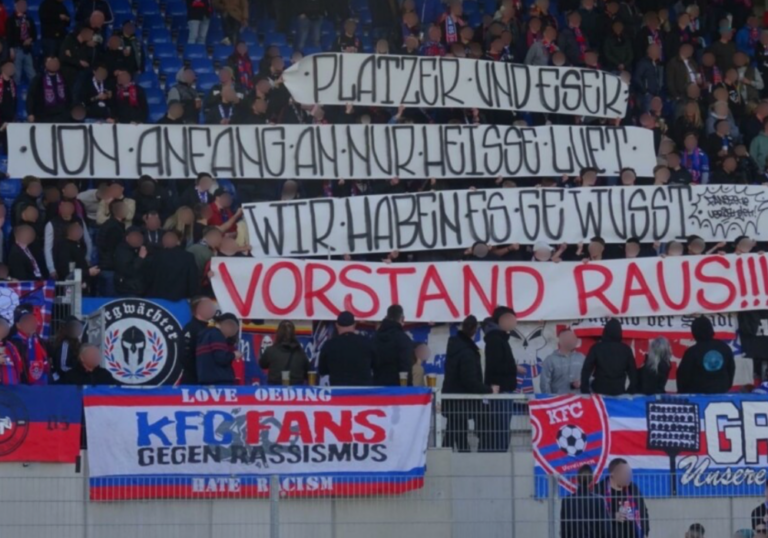 · PLATZER · UND ESER
· VON · ANFANG · AN · NUR · HEISSE · LUFT ·
WIR · HABEN ES · GEWUSST
VORSTAND RAUS!!!
LOVE OEDING
KFC FANS
GEGEN RASSISMUS
HATE RACISM
KFC
Unsere